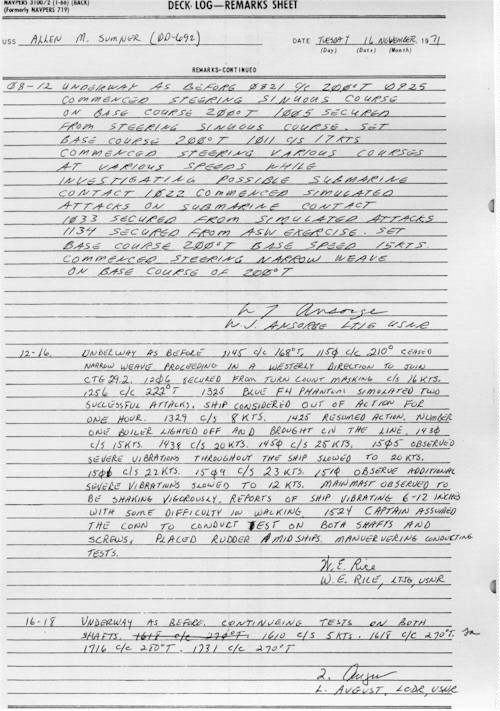 NAVPERS 3100/2 (1-66) (BACK)
(Formerly NAVPERS 719)
DECK LOG—REMARKS SHEET
USS ALLEN M. SUMNER (DD-692) DATE TUESDAY 16 NOVEMBER, 1971
(Day) (Date) (Month)
REMARKS-CONTINUED
08-12 UNDERWAY AS BEFORE 0821 C/C 200°T 0825
COMMENCED STEERING SINUOUS COURSE
ON BASE COURSE 200°T 1005 SECURED
FROM STEERING SINUOUS COURSE. SET
BASE COURSE 200°T 1011 C/S 17KTS
COMMENCED STEERING VARIOUS COURSES
AT VARIOUS SPEEDS WHILE
INVESTIGATING POSSIBLE SUBMARINE
CONTACT 1022 COMMENCED SIMULATED
ATTACKS ON SUBMARINE CONTACT
1033 SECURED FROM SIMULATED ATTACKS
1134 SECURED FROM ASW EXERCISE. SET
BASE COURSE 200°T BASE SPEED 15KTS
COMMENCED STEERING NARROW WEAVE
ON BASE COURSE OF 200°T
W J Ansorge
W.J. ANSORGE LTJG USNR
12-16. UNDERWAY AS BEFORE 1145 C/C 168°T, 1150 C/C 210° CEASED
NARROW WEAVE. PROCEEDING IN A WESTERLY DIRECTION TO JOIN
CTG 29.2. 1206 SECURED FROM TURN COUNT MASKING C/S 16 KTS.
1256 C/C 222°T 1325 BLUE F4 PHANTOM SIMULATED TWO
SUCCESSFUL ATTACKS. SHIP CONSIDERED OUT OF ACTION FOR
ONE HOUR. 1329 C/S 8 KTS. 1425 RESUMED ACTION. NUMBER
ONE BOILER LIGHTED OFF AND BROUGHT ON THE LINE. 1430
C/S 15KTS. 1438 C/S 20KTS. 1450 C/S 25KTS. 1505 OBSERVED
SEVERE VIBRATIONS THROUGHOUT THE SHIP SLOWED TO 20KTS.
1506 C/S 22KTS. 1509 C/S 23 KTS. 1510 OBSERVE ADDITIONAL
SEVERE VIBRATIONS SLOWED TO 12 KTS. MAINMAST OBSERVED TO
BE SHAKING VIGOROUSLY. REPORTS OF SHIP VIBRATING 6-12 INCHES
WITH SOME DIFFICULTY IN WALKING. 1524 CAPTAIN ASSUMED
THE CONN TO CONDUCT TEST ON BOTH SHAFTS AND
SCREWS, PLACED RUDDER AMIDSHIPS. MANUERVERING CONDUCTING
TESTS.
W.E. Rice
W.E. RICE, LTJG, USNR
16-18 UNDERWAY AS BEFORE. CONTINUEING TESTS ON BOTH
SHAFTS. 1618 C/C 270°T. 1610 C/S 5KTS. 1618 C/C 270°T.
1716 C/C 280°T. 1731 C/C 270°T
L. August
L. AUGUST, LCDR, USNR